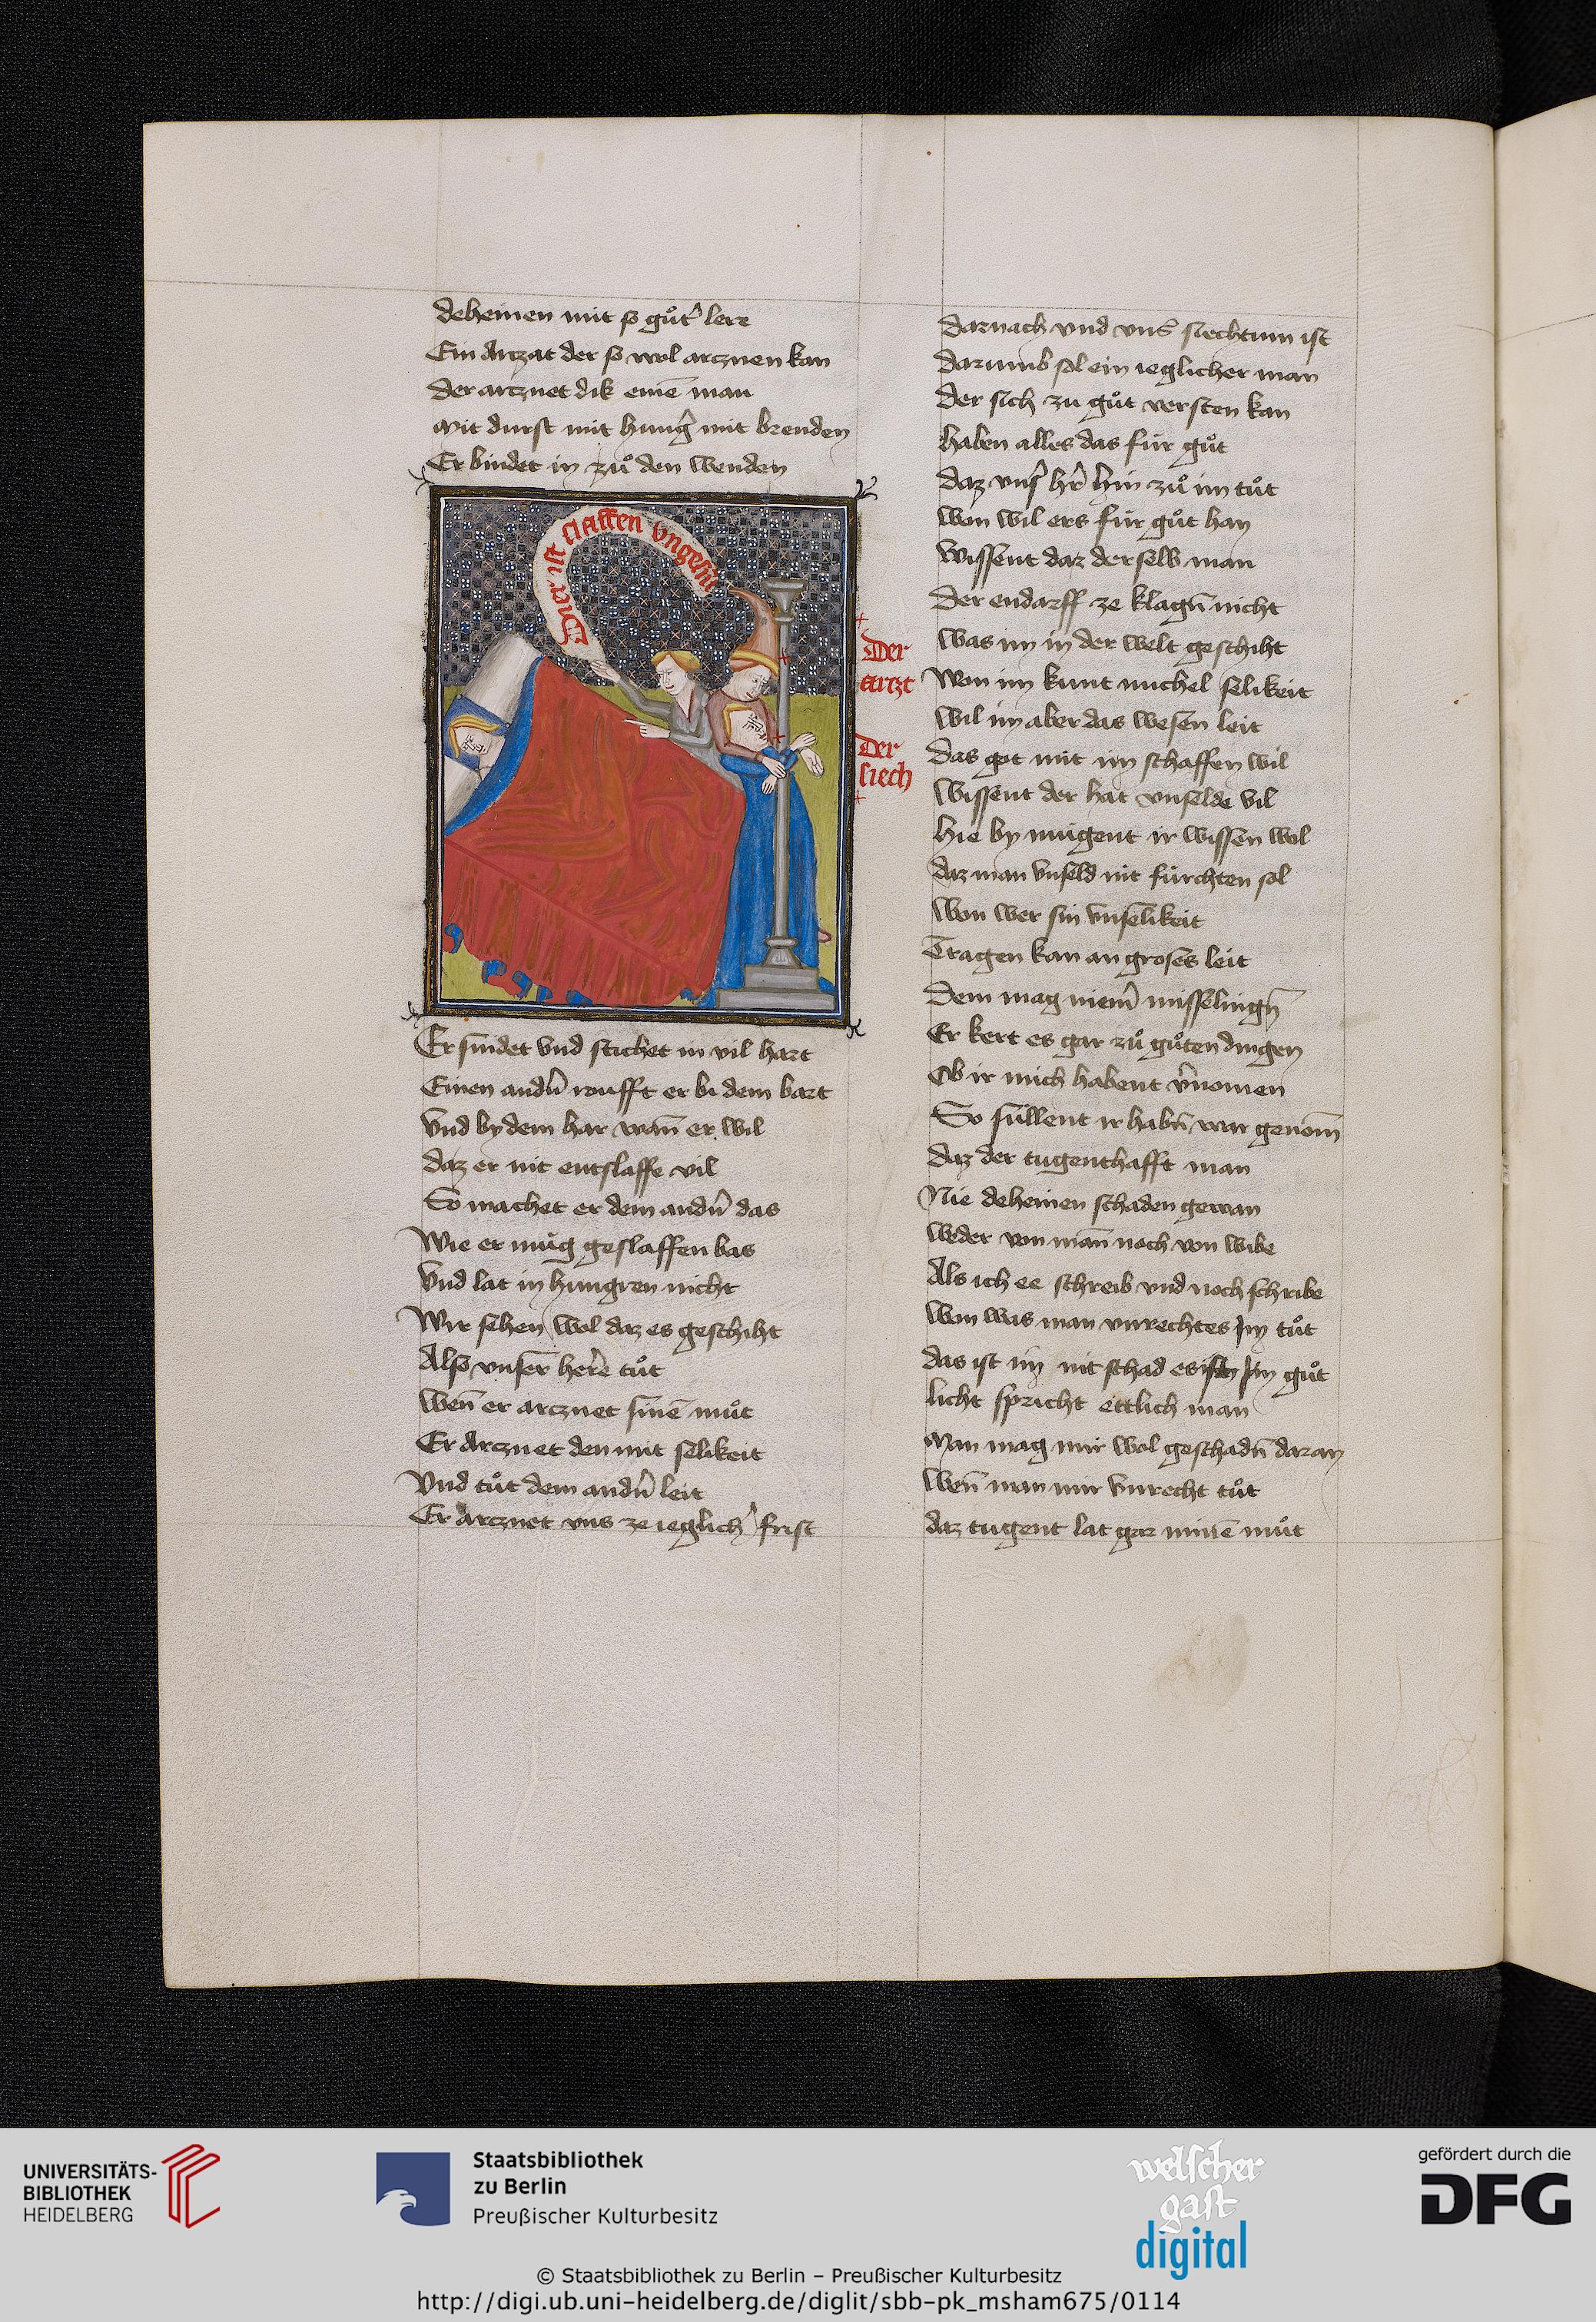 deheinen mit so gůt᷑ lere
Ein Arczat der so wol arcznen kan
der arcznet dik einē man
Mit durst mit hung᷑ mit brenden
Er bindet in zů den wenden
Dir ist slaffen ungesūt
Der
artzt
Der
siech
Er snidet vnd stichet in vil hart
Einen and᷑n roufft er bi dem bart
Vnd by dem har wañ er wil
daz er nit entslaffe vil
So machet er dem and᷑n das
Wie er mug geslaffen bas
Vnd lat in hungren nicht
Wir sehen wol daz es geschiht
Also vnser here tůt
Weñ er arcznet sinē můt
Er Arcznet den mit selikeit
Vnd tůt dem and᷑n leit
Er Arcznet vns ze ieglich᷑ frist
Darnach vnd vns᷑ siechtum ist
darumb sol ein ieglicher man
der sich zu gůt versten kan
haben alles das für gůt
daz vns᷑ h᷑r hin zů im tůt
Won wil ers für gůt han
Wissent daz derselb man
Der endarff ze klagn̄ nicht
Was im in der welt geschiht
Won im kunt michel selikeit
Wil im aber das wesen leit
Das got mit im schaffen wil
Wissent der hat vnselde vil
Hie by mügent ir wissen wol
daz man vnseld nit fürchten sol
Won wer sin vnselikeit
Tragen kan an groses leit
Dem mag niem᷑ misselingn̄
Er kert es gar zů gůten dingen
Ob ir mich habent v᷑nomen
So süllent ir habn̄ war genom̄
daz der tugenthafft man
Nie deheinen schaden gewan
Weder von mañ noch von wibe
Als ich ee schreib vnd noch schribe
Won was man vnrechtes Im tůt
das ist im nit schad es ist Im gůt
licht spricht ettlich man
Man mag mir wol geschadn̄ daran
Weñ man mir vnrecht tůt
daz tugent lat gar minē můt
UNIVERSITÄTS-
BIBLIOTHEK
HEIDELBERG
Staatsbibliothek
zu Berlin
Preußischer Kulturbesitz
welscher
gast
digital
gefördert durch die
DFG
© Staatsbibliothek zu Berlin – Preußischer Kulturbesitz
http://digi.ub.uni-heidelberg.de/diglit/sbb-pk_msham675/0114